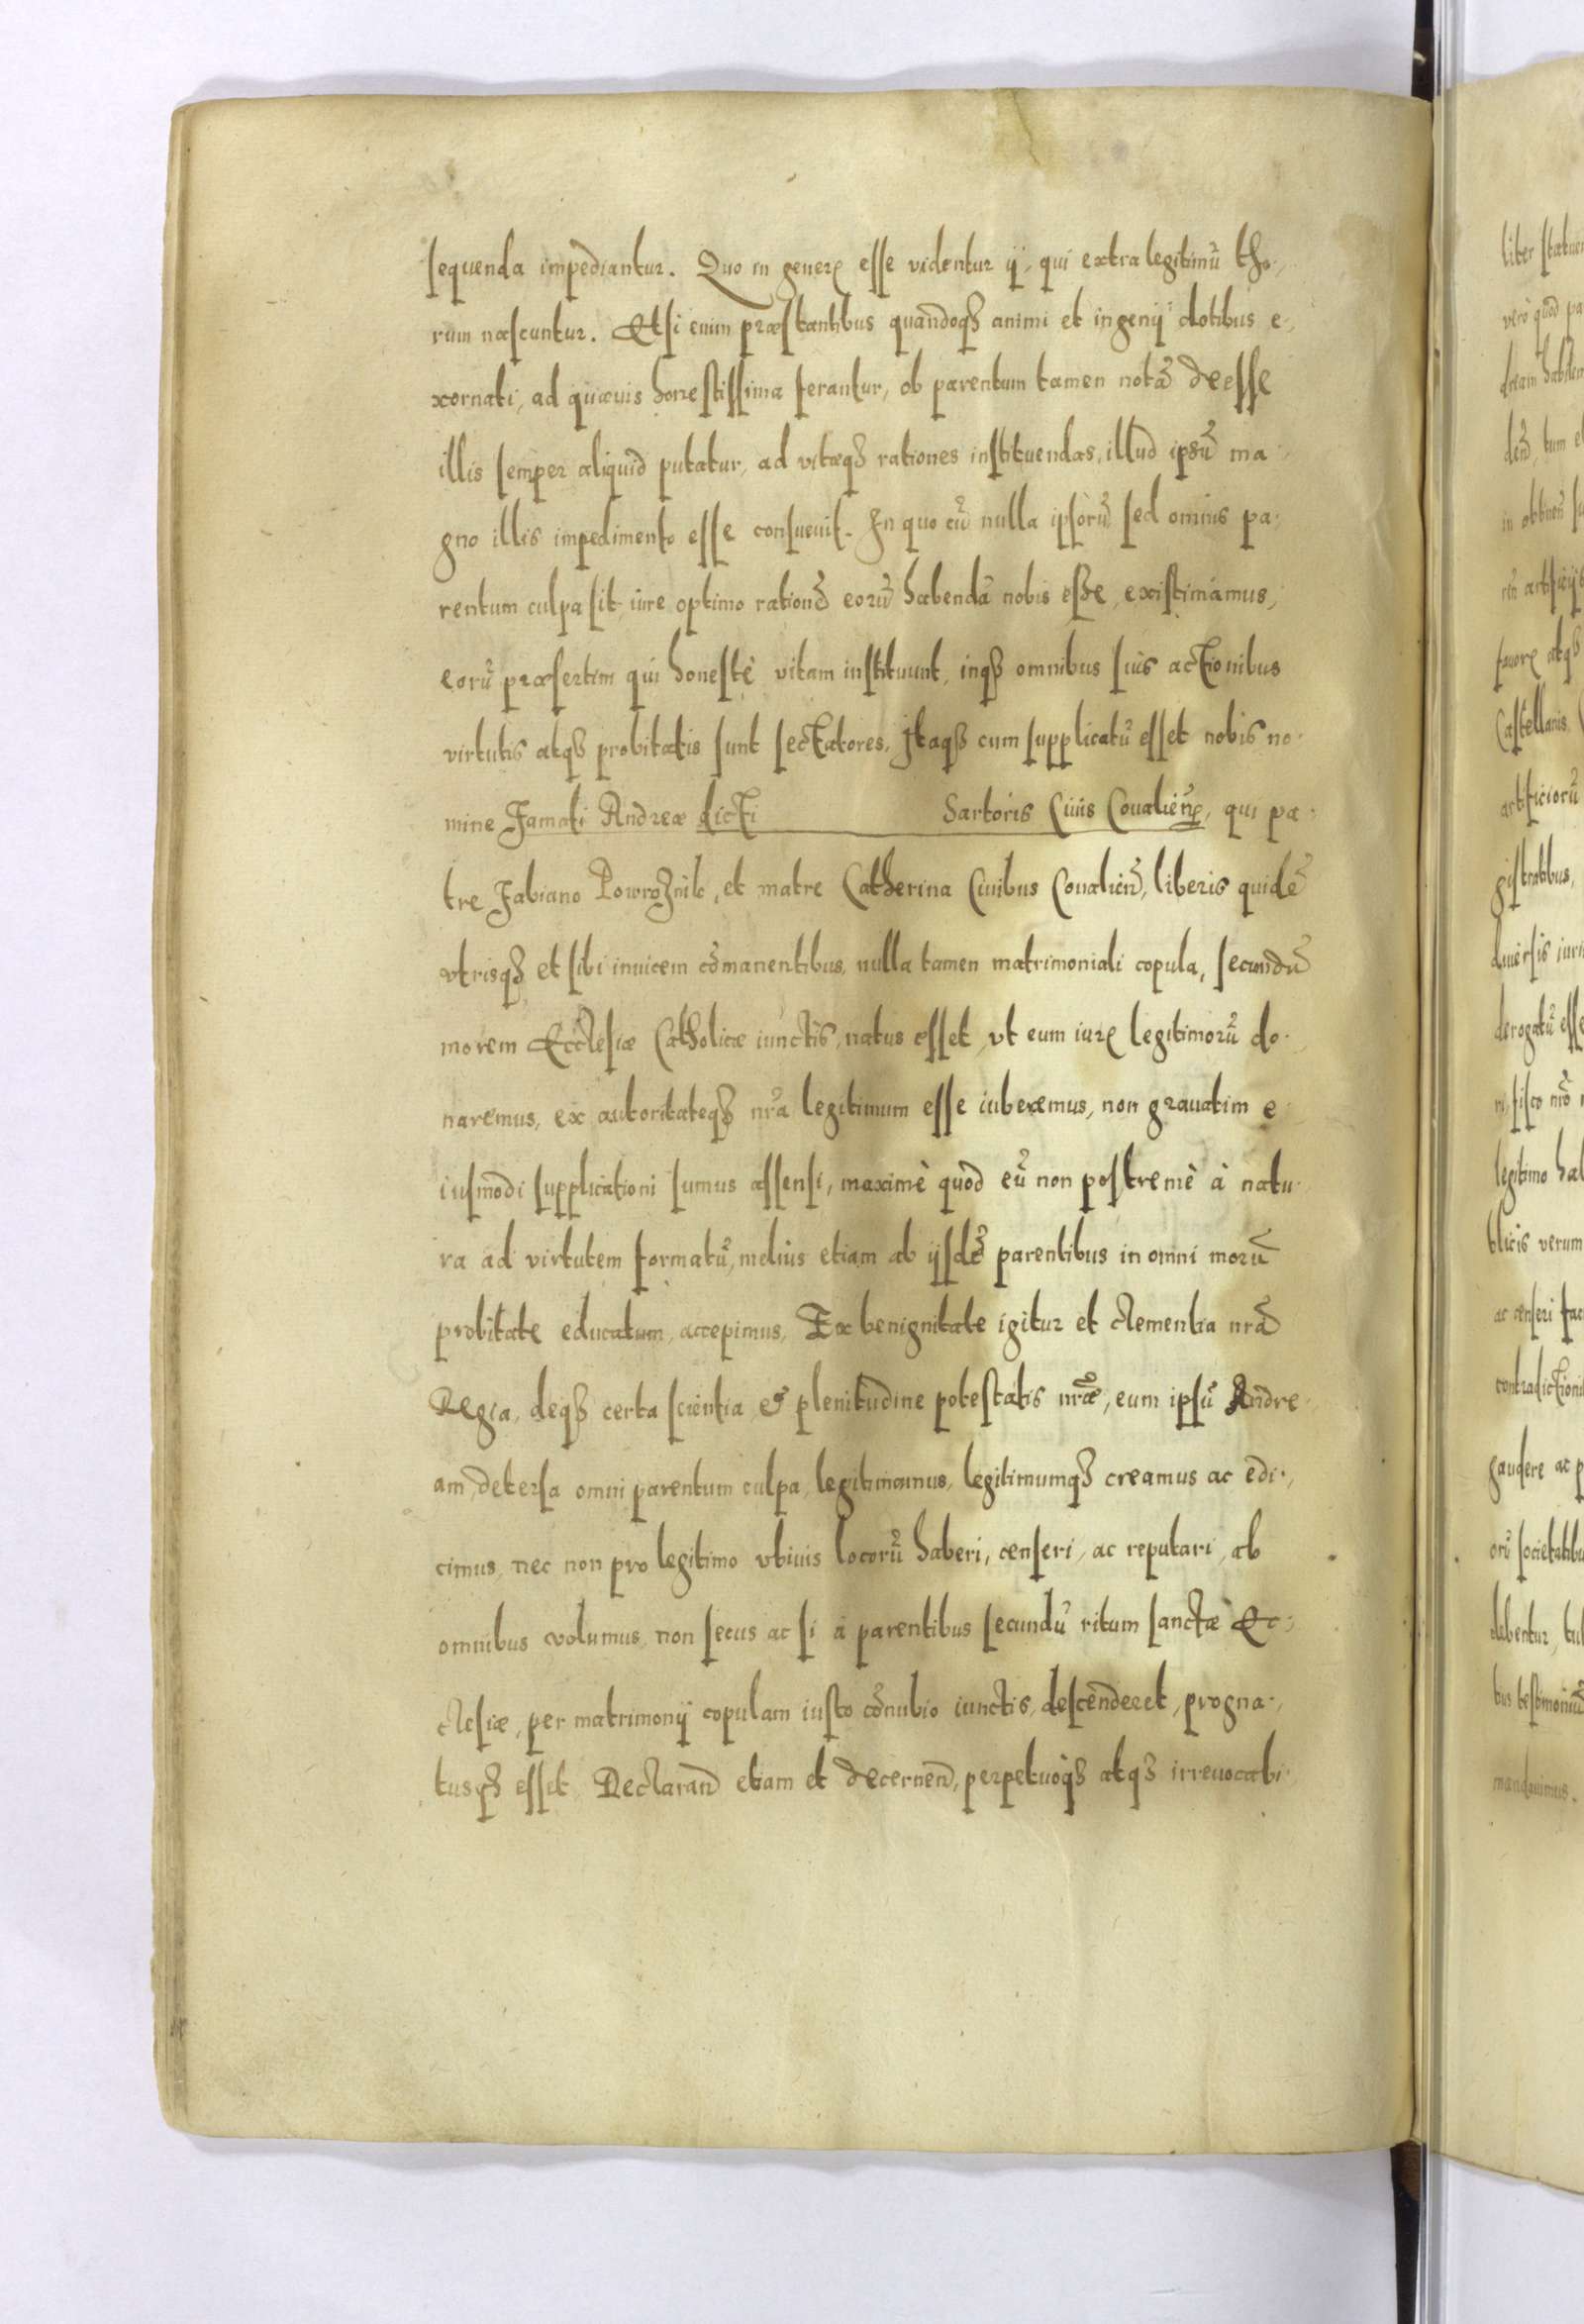 sequenda impediantur. Quo in genere esse videntur ij, qui extra legitimũ tho-
rum nascuntur. Etsi enim præstantibus quandoqȝ animi et ingenij dotibus e-
xornati, ad quævis honestissima ferantur, ob parentum tamen notã deesse
illis semper aliquid putatur, ad vitæqȝ rationes instituendas, illud ipsũ ma-
gno illis impedimento esse consuevit. In quo cũ nulla ipsorũ sed omnis pa-
rentum culpa sit, iure optimo rationẽ eorũ habendã nobis esse, existimamus,
eorũ præsertim qui honestè vitam instituunt, inqȝ omnibus suis actionibus
virtutis atqȝ probitatis sunt sectatores. Itaqȝ cum supplicatũ esset nobis no-
mine Famati Andreæ dicti Sartoris Civis Covalieñ, qui pa-
tre Fabiano Powroznik, et matre Catherina Civibus Covalieñ, liberis quidẽ
vtrisqȝ et sibi invicem cõmanentibus, nulla tamen matrimoniali copula, secundũ
morem Ecclesiæ Catholicæ iunctis, natus esset, vt eum iure legitimorũ do-
naremus, ex autoritateqȝ nr̃a legitimum esse iuberemus, non gravatim e-
iusmodi supplicationi sumus assensi, maximè quòd eũ non postremè à natu-
ra ad virtutem formatũ, meliùs etiam ab ijsdẽ parentibus in omni morũ
probitate educatum, accepimus. Ex benignitate igitur et clementia nr̃a
Regia, deqȝ certa scientia & plenitudine potestatis nr̃æ, eum ipsũ Andre-
am, detersa omni parentum culpa, legitimamus, legitimumqȝ creamus ac edi-
cimus, nec non pro legitimo vbivis locorũ haberi, censeri, ac reputari, ab
omnibus volumus, non secus ac si à parentibus secundũ ritum sanctæ Ec-
clesiæ, per matrimonij copulam iusto cõnubio iunctis, descenderet, progna-
tusqȝ esset. Declarañ etiam et decerneñ, perpetuòqȝ atqȝ irrevocabi-